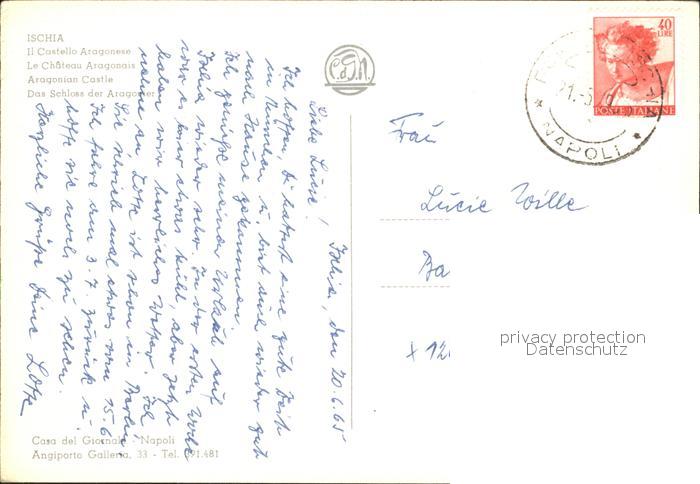 ISCHIA
Il Castello Aragonese
Le Château Aragonais
Aragonian Castle
Das Schloss der Aragoner
C.d.G.N.
40
LIRE
POSTE ITALIANE
NAPOLI
Ischia, den 20.6.65
Liebe Lucie!
Ich hoffe, Du hattest eine gute Zeit
in München u. bist auch wieder gut
nach Hause gekommen.
Ich genieße meinen Urlaub auf
Ischia wieder sehr. In der ersten Woche
war es hier etwas kühl, aber jetzt
haben wir herrliches Wetter. Ich
nehme an, Lotte ist schon in Berlin,
Sie schrieb mal etwas vom 15.6.
Ich fahre am 3.7. zurück u.
hoffe sie noch zu sehen.
Herzliche Grüße Deine Lotte
Frau
Lucie Wille
Ba
X 12
privacy protection
Datenschutz
Casa del Giornale - Napoli
Angiporto Galleria, 33 - Tel. 391.481